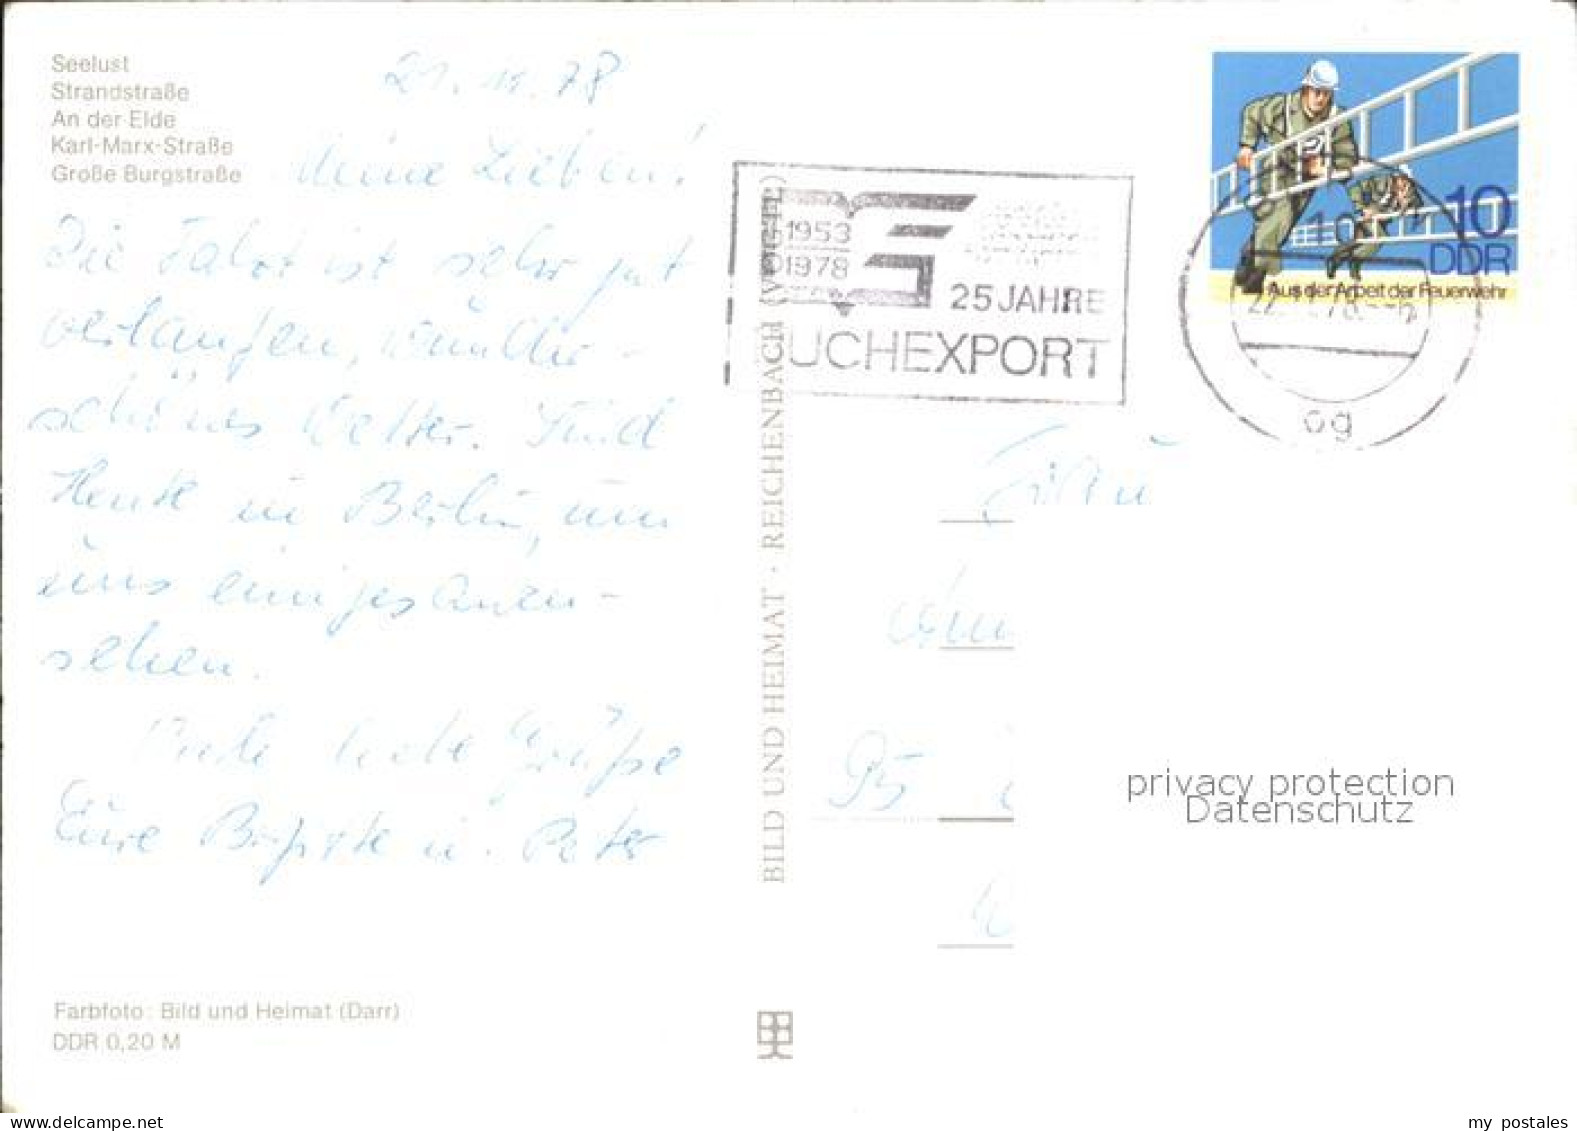 Seelust
Strandstraße
An der Elde
Karl-Marx-Straße
Große Burgstraße
21. 11. 78
Meine Lieben!
Die Fahrt ist sehr gut
verlaufen, wunder-
schönes Wetter. Sind
Heute in Berlin, um
uns einiges anzu-
sehen.
Viele liebe Grüße
Eure Brigitte u. Peter
Farbfoto: Bild und Heimat (Darr)
DDR 0,20 M
BILD UND HEIMAT · REICHENBACH (VOGTL)
1953
1978
25 JAHRE
BUCHEXPORT
10
DDR
Aus der Arbeit der Feuerwehr
10
22.
og
Frau
95
privacy protection
Datenschutz
my postales